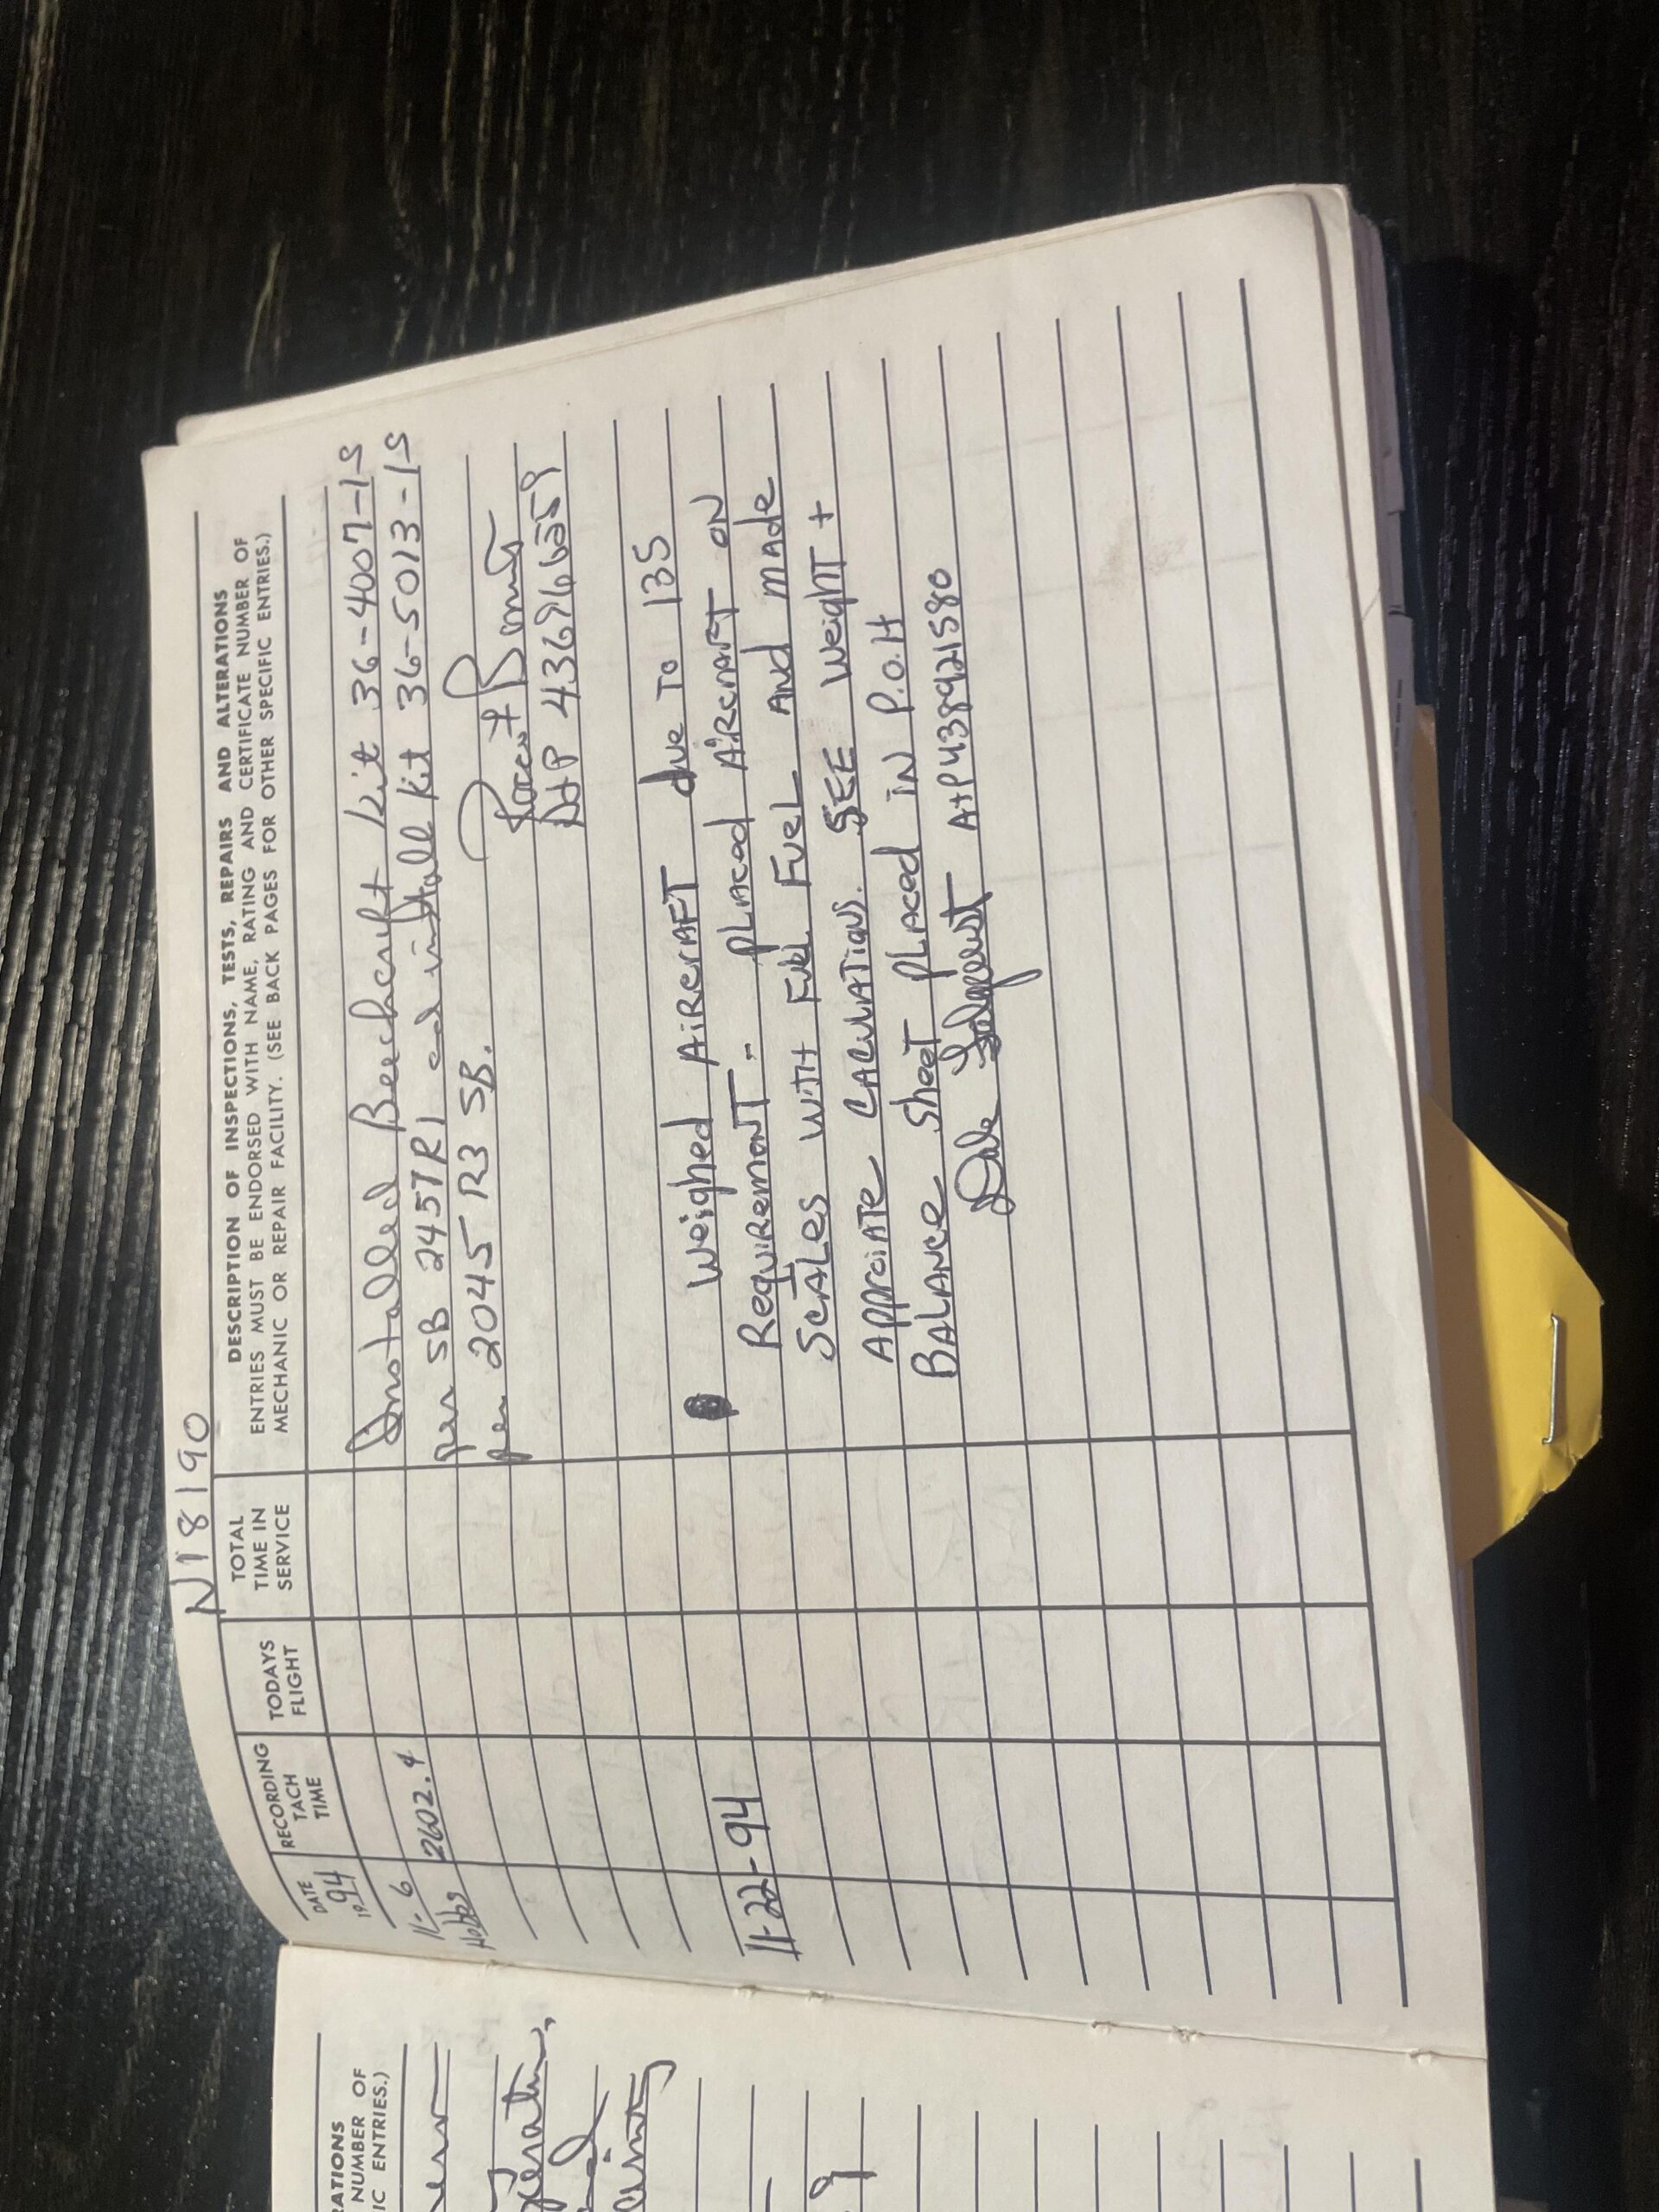 N18190
DATE
1994
RECORDING
TACH
TIME
TODAYS
FLIGHT
TOTAL
TIME IN
SERVICE
DESCRIPTION OF INSPECTIONS, TESTS, REPAIRS AND ALTERATIONS
ENTRIES MUST BE ENDORSED WITH NAME, RATING AND CERTIFICATE NUMBER OF
MECHANIC OR REPAIR FACILITY. (SEE BACK PAGES FOR OTHER SPECIFIC ENTRIES.)
Installed Beechcraft Kit 36-4007-1S
11-6 2602.4 per SB 2457R1 and install kit 36-5013-1S
Hobbs per 2045 R3 SB.
A+P
Weighed AiRcRAFT due To 135
11-22-94 RequiRemonT.- pLAced AiRcRAFT ON
ScALes wiTH Full FueL And mAde
AppRoiATE CAlculATiONS. SEE WeighT +
BALANce SheeT pLAced iN P.O.H
Dale A+P 438921580
RATIONS
NUMBER OF
IC ENTRIES.)